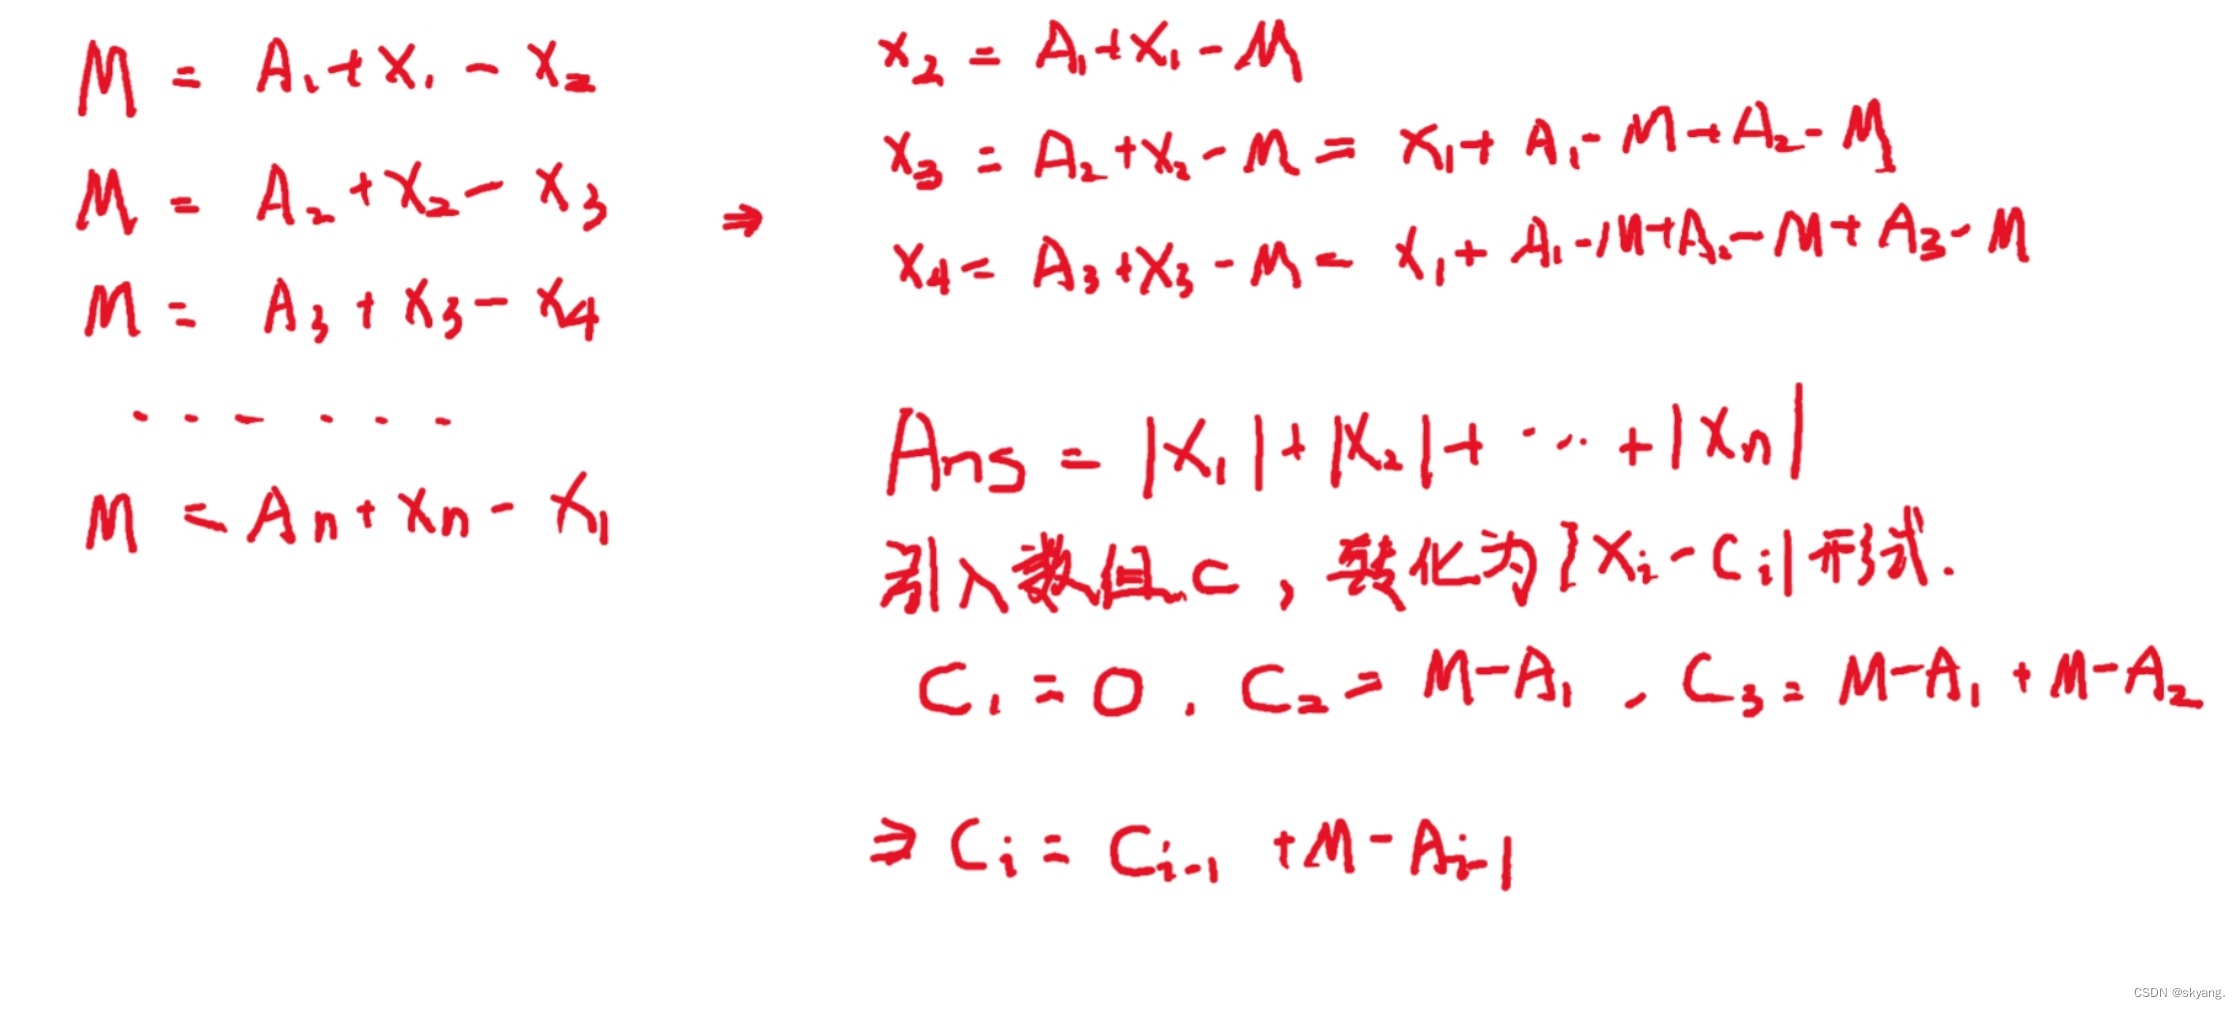 M = A₁ + X₁ - X₂
M = A₂ + X₂ - X₃
M = A₃ + X₃ - X₄
. . - . . .
M = Aₙ + Xₙ - X₁
⇒
X₂ = A₁ + X₁ - M
X₃ = A₂ + X₂ - M = X₁ + A₁ - M + A₂ - M
X₄ = A₃ + X₃ - M = X₁ + A₁ - M + A₂ - M + A₃ - M
Ans = |X₁| + |X₂| + ... + |Xₙ|
引入数值C,转化为|Xᵢ - Cᵢ|形式.
C₁ = 0 , C₂ = M - A₁ , C₃ = M - A₁ + M - A₂
⇒ Cᵢ = Cᵢ₋₁ + M - Aᵢ₋₁
CSDN @skyang.